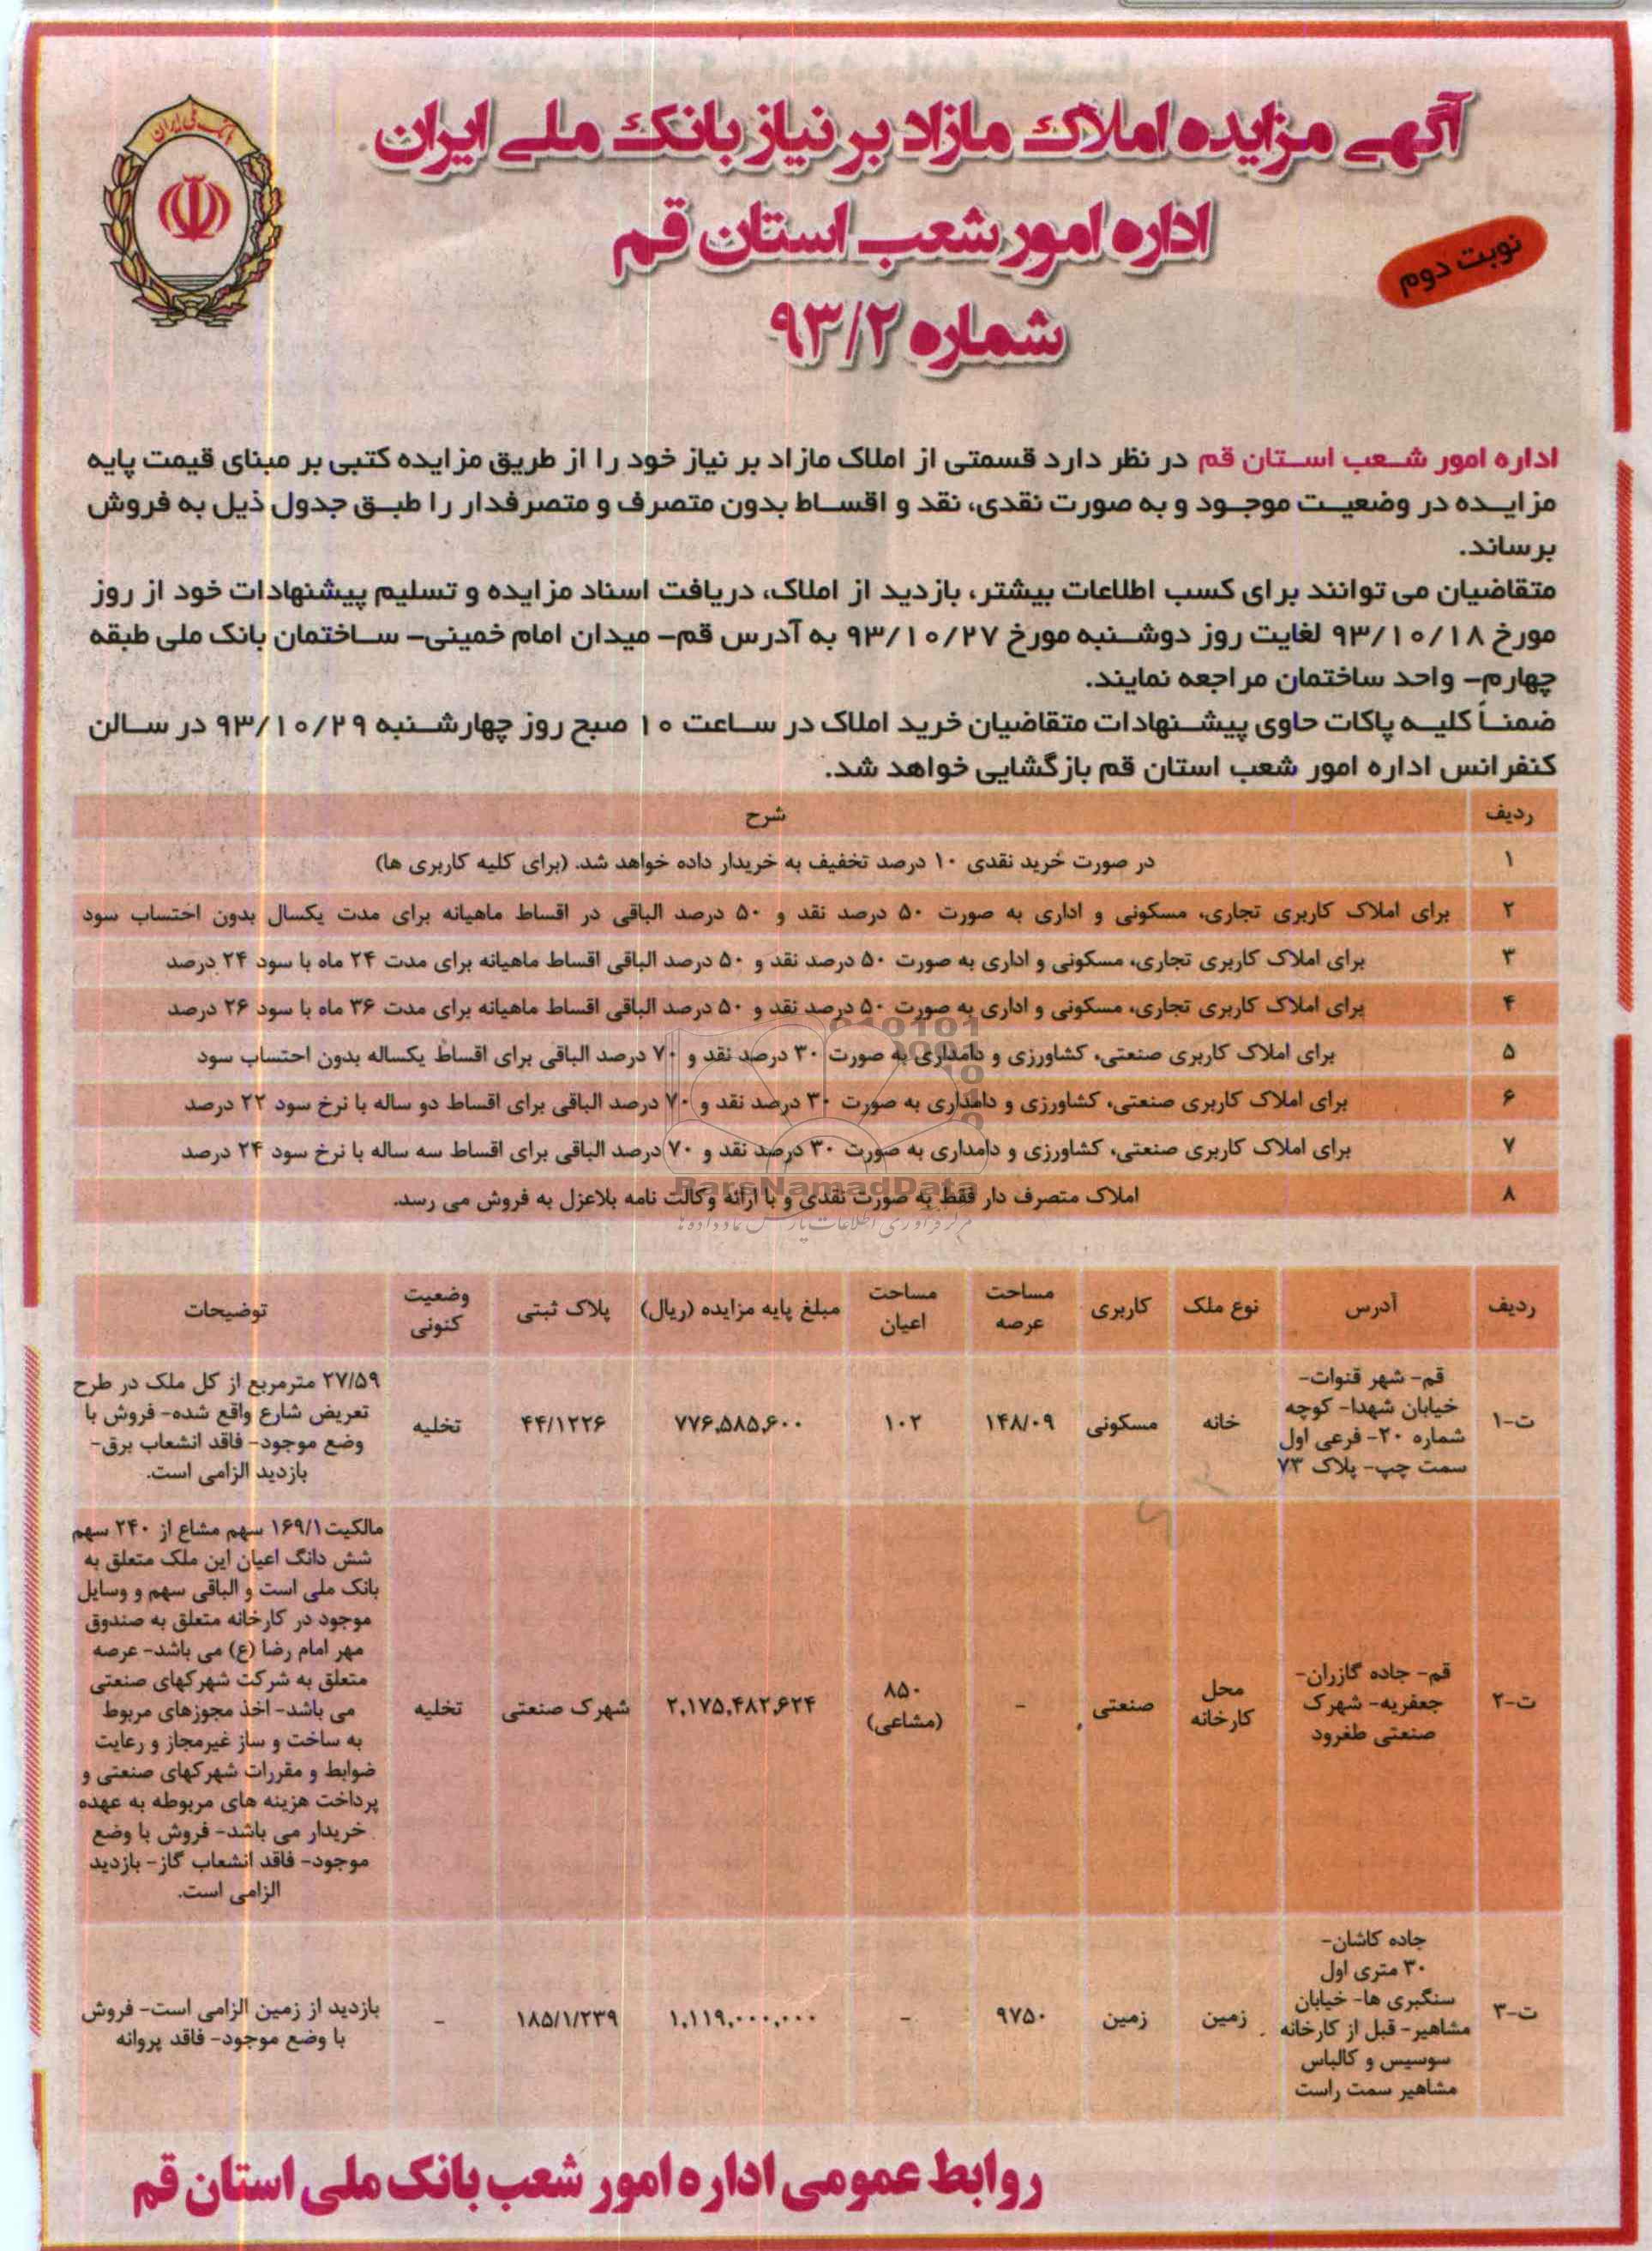 بانک ملی ایران
آگهی مزایده املاک مازاد بر نیاز بانک ملی ایران
اداره امور شعب استان قم
نوبت دوم
شماره ۹۳/۲
اداره امور شعب استان قم در نظر دارد قسمتی از املاک مازاد بر نیاز خود را از طریق مزایده کتبی بر مبنای قیمت پایه
مزایده در وضعیت موجود و به صورت نقدی، نقد و اقساط بدون متصرف و متصرفدار را طبق جدول ذیل به فروش
برساند.
متقاضیان می توانند برای کسب اطلاعات بیشتر، بازدید از املاک، دریافت اسناد مزایده و تسلیم پیشنهادات خود از روز
مورخ ۹۳/۱۰/۱۸ لغایت روز دوشنبه مورخ ۹۳/۱۰/۲۷ به آدرس قم- میدان امام خمینی- ساختمان بانک ملی طبقه
چهارم- واحد ساختمان مراجعه نمایند.
ضمناً کلیه پاکات حاوی پیشنهادات متقاضیان خرید املاک در ساعت ۱۰ صبح روز چهارشنبه ۹۳/۱۰/۲۹ در سالن
کنفرانس اداره امور شعب استان قم بازگشایی خواهد شد.
ردیف شرح
۱ در صورت خرید نقدی ۱۰ درصد تخفیف به خریدار داده خواهد شد. (برای کلیه کاربری ها)
۲ برای املاک کاربری تجاری، مسکونی و اداری به صورت ۵۰ درصد نقد و ۵۰ درصد الباقی در اقساط ماهیانه برای مدت یکسال بدون احتساب سود
۳ برای املاک کاربری تجاری، مسکونی و اداری به صورت ۵۰ درصد نقد و ۵۰ درصد الباقی اقساط ماهیانه برای مدت ۲۴ ماه با سود ۲۴ درصد
۴ برای املاک کاربری تجاری، مسکونی و اداری به صورت ۵۰ درصد نقد و ۵۰ درصد الباقی اقساط ماهیانه برای مدت ۳۶ ماه با سود ۲۶ درصد
۵ برای املاک کاربری صنعتی، کشاورزی و دامداری به صورت ۳۰ درصد نقد و ۷۰ درصد الباقی برای اقساط یکساله بدون احتساب سود
۶ برای املاک کاربری صنعتی، کشاورزی و دامداری به صورت ۳۰ درصد نقد و ۷۰ درصد الباقی برای اقساط دو ساله با نرخ سود ۲۲ درصد
۷ برای املاک کاربری صنعتی، کشاورزی و دامداری به صورت ۳۰ درصد نقد و ۷۰ درصد الباقی برای اقساط سه ساله با نرخ سود ۲۴ درصد
۸ املاک متصرف دار فقط به صورت نقدی و با ارائه وکالت نامه بلاعزل به فروش می رسد.
ParsNamadData
مرکز فرآوری اطلاعات پارس نماد داده ها
ردیف آدرس نوع ملک کاربری مساحت عرصه مساحت اعیان مبلغ پایه مزایده (ریال) پلاک ثبتی وضعیت کنونی توضیحات
ت-۱
قم- شهر قنوات-
خیابان شهدا- کوچه
شماره ۲۰- فرعی اول
سمت چپ- پلاک ۷۳
خانه
مسکونی
۱۴۸/۰۹
۱۰۲
۷۷۶,۵۸۵,۶۰۰
۴۴/۱۲۲۶
تخلیه
۲۷/۵۹ مترمربع از کل ملک در طرح
تعریض شارع واقع شده- فروش با
وضع موجود- فاقد انشعاب برق-
بازدید الزامی است.
ت-۲
قم- جاده گازران-
جعفریه- شهرک
صنعتی طغرود
محل
کارخانه
صنعتی
-
۸۵۰
(مشاعی)
۲,۱۷۵,۴۸۲,۶۲۴
شهرک صنعتی
تخلیه
مالکیت ۱۶۹/۱ سهم مشاع از ۲۴۰ سهم
شش دانگ اعیان این ملک متعلق به
بانک ملی است و الباقی سهم و وسایل
موجود در کارخانه متعلق به صندوق
مهر امام رضا (ع) می باشد- عرصه
متعلق به شرکت شهرکهای صنعتی
می باشد- اخذ مجوزهای مربوط
به ساخت و ساز غیرمجاز و رعایت
ضوابط و مقررات شهرکهای صنعتی و
پرداخت هزینه های مربوطه به عهده
خریدار می باشد- فروش با وضع
موجود- فاقد انشعاب گاز- بازدید
الزامی است.
ت-۳
جاده کاشان-
۳۰ متری اول
سنگبری ها- خیابان
مشاهیر- قبل از کارخانه
سوسیس و کالباس
مشاهیر سمت راست
زمین
زمین
۹۷۵۰
-
۱,۱۱۹,۰۰۰,۰۰۰
۱۸۵/۱/۲۳۹
-
بازدید از زمین الزامی است- فروش
با وضع موجود- فاقد پروانه
روابط عمومی اداره امور شعب بانک ملی استان قم